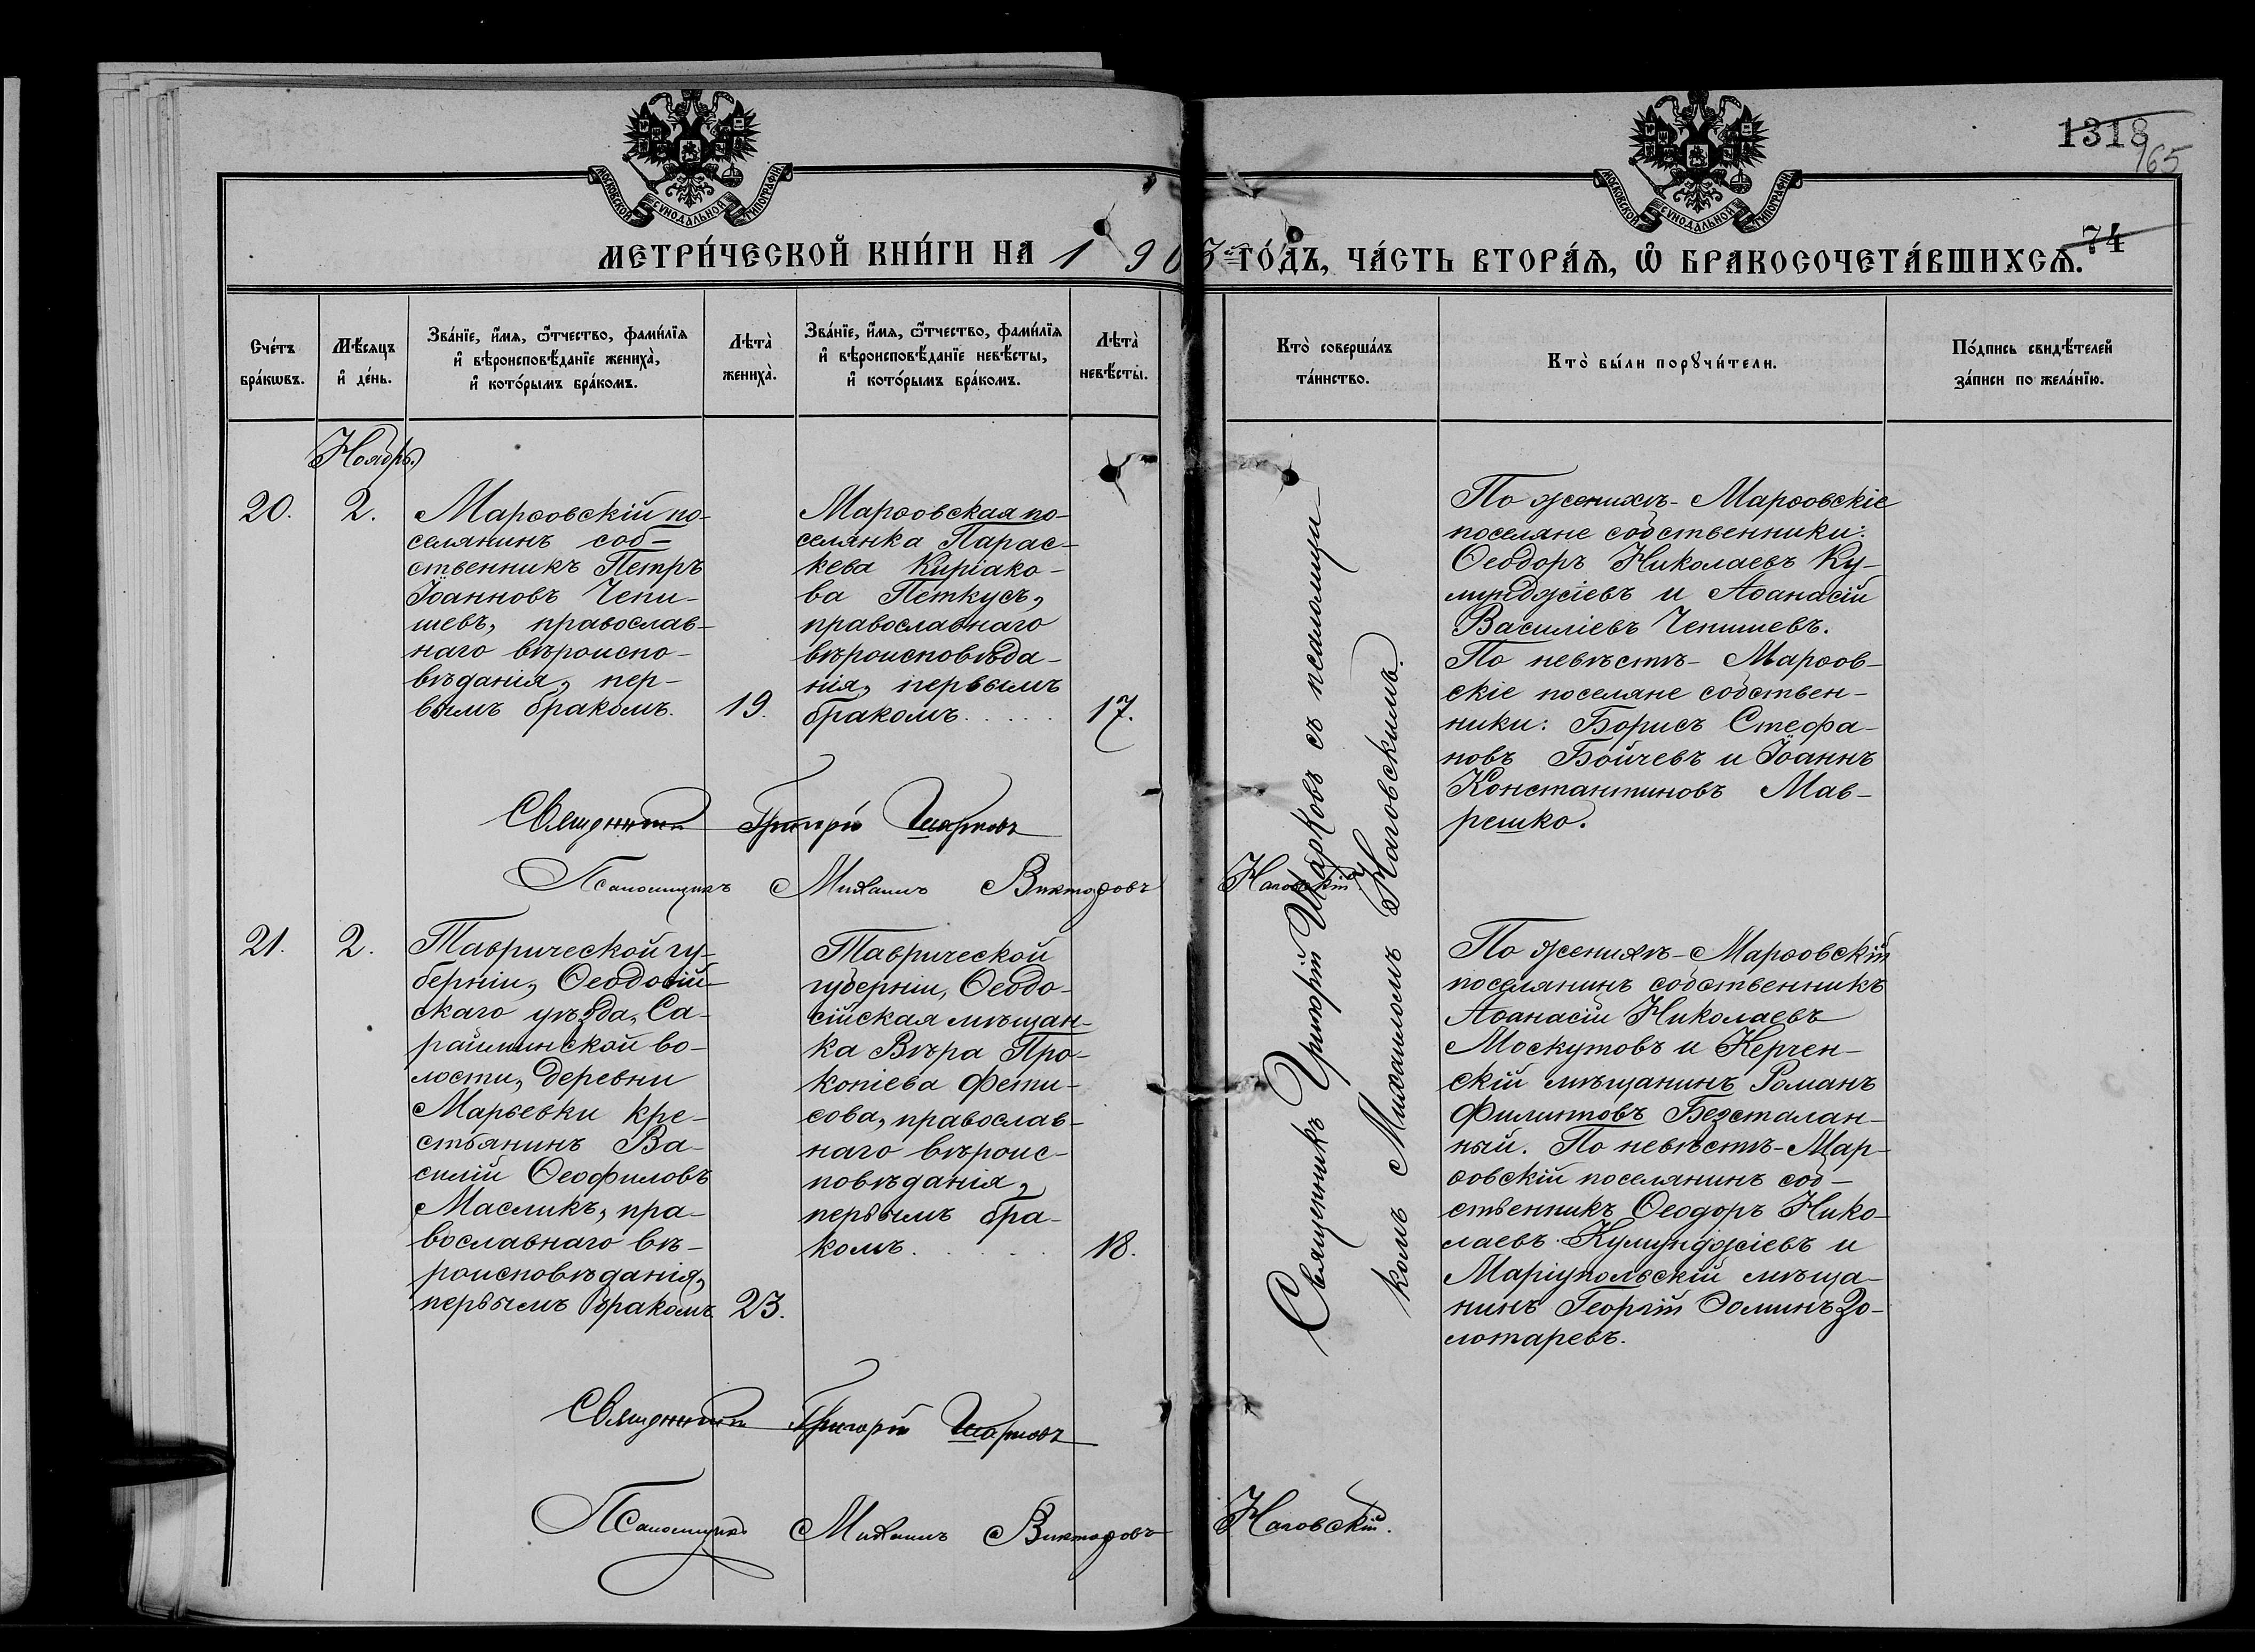 МОСКОВСКОЙ СѴНОДАЛЬНОЙ ТИПОГРАФІИ
МОСКОВСКОЙ СѴНОДАЛЬНОЙ ТИПОГРАФІИ
1318
165
74
МЕТРИ́ЧЕСКОЙ КНИ́ГИ НА 1903 ГО́ДЪ, ЧА́СТЬ ВТОРА́Ѧ, Ѡ҆ БРАКОСОЧЕТА́ВШИХСѦ.
Сче́тъ
бра́кѡвъ.
Мѣ́сяцъ
и҆ де́нь.
Зва́нїе, и҆́мя, ѻ҆́тчество, фами́лїя
и҆ вѣроисповѣ́данїе жениха̀,
и҆ кото́рымъ бра́комъ.
Лѣта̀
жениха̀.
Зва́нїе, и҆́мя, ѻ҆́тчество, фами́лїя
и҆ вѣроисповѣ́данїе невѣ́сты,
и҆ кото́рымъ бра́комъ.
Лѣта̀
невѣ́сты.
Кто̀ соверша́лъ
та́инство.
Кто̀ бы́ли порꙋчи́тели.
По́дпись свидѣ́телей
за́писи по жела́нїю.
Ноябрь.
20.
2.
Марѳовскій по-
селянинъ соб-
ственникъ Петръ
Іоанновъ Чепи-
шевъ, православ-
наго вѣроиспо-
вѣданія, пер-
вымъ бракомъ.
19.
Марѳовская по-
селянка Парас-
кева Киріако-
ва Петкусъ,
православнаго
вѣроисповѣда-
нія, первымъ
бракомъ.....
17.
Священникъ Григорій Шарковъ съ псаломщи-
комъ Михаиломъ Наговскимъ.
По женихѣ - Марѳовскіе
поселяне собственники:
Ѳеодоръ Николаевъ Ку-
мунджіевъ и Аѳанасій
Василіевъ Чепишевъ.
По невѣстѣ - Марѳов-
скіе поселяне собствен-
ники: Борисъ Стефа-
новъ Бойчевъ и Іоаннъ
Константиновъ Мав-
решко.
Священникъ Григорій Шарковъ
Псаломщикъ Михаилъ Викторовъ Наговскій
21.
2.
Таврической гу-
берніи, Ѳеодосій-
скаго уѣзда, Са-
райминской во-
лости, деревни
Марьевки кре-
стьянинъ Ва-
силій Ѳеофиловъ
Масликъ, пра-
вославнаго вѣ-
роисповѣданія,
первымъ бракомъ.
23.
Таврической
губерніи, Ѳеодо-
сійская мѣщан-
ка Вѣра Про-
копіева Фети-
сова, православ-
наго вѣроис-
повѣданія,
первымъ бра-
комъ.....
18.
По женихѣ - Марѳовскій
поселянинъ собственникъ
Аѳанасій Николаевъ
Москутовъ и Керчен-
скій мѣщанинъ Романъ
Филипповъ Безсталан-
ный. По невѣстѣ - Мар-
ѳовскій поселянинъ соб-
ственникъ Ѳеодоръ Нико-
лаевъ Кумунджіевъ и
Маріупольскій мѣща-
нинъ Георгій Ѳоминъ Зо-
лотаревъ.
Священникъ Григорій Шарковъ
Псаломщикъ Михаилъ Викторовъ Наговскій.